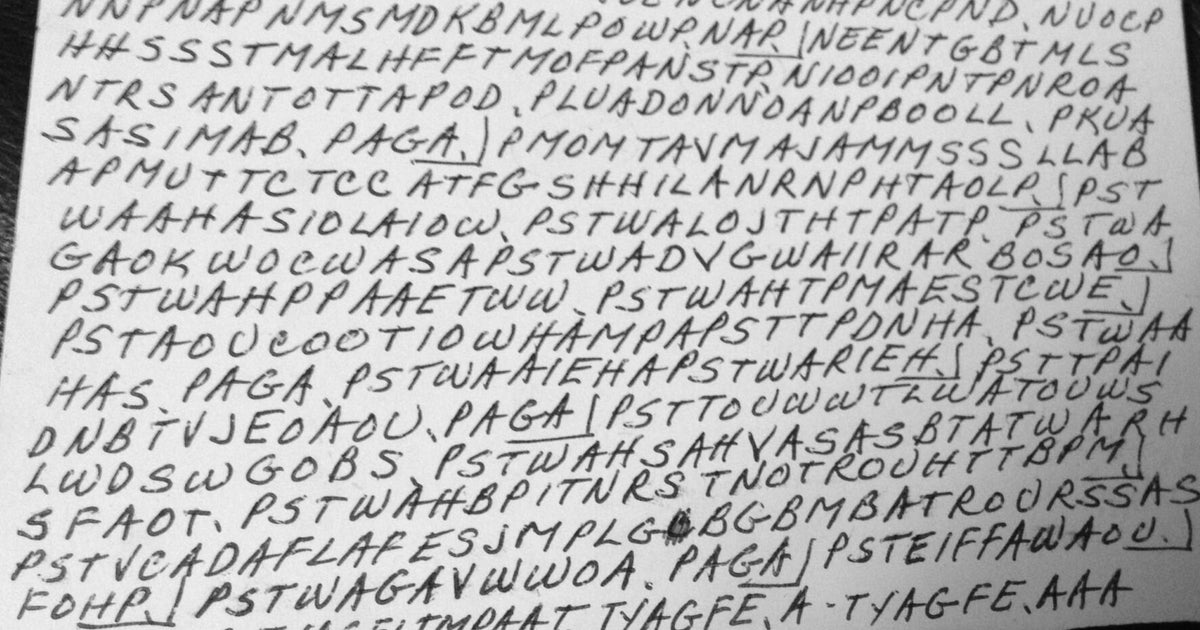 NNPNAPNMSMDKBMLPOWP.NAP.
HHSSSTMALHFFTMOFPANSTP.NIOOIPNTPNROA
NTRSANTOTTAPOD. PLUADONNOANPBOOLL. PKUA
SASIMAB. PAGA. PMOMTAVMAJAMMSSSLLAB
APMUTTCTCCATFGSHHILANRNPHTAOLP. PST
WAAHASIOLAIOW. PSTWALOJTHTPATP. PSTWA
GAOKWOCWASAPSTWADVGWAIIRARBOSAO.
PSTWAHPPAAETWW. PSTWAHTPMAESTCWE.
PSTAOUCOOTIOWHAMPAPSTTPDNHA. PSTWAA
HAS. PAGA. PSTWAAIEHAPSTWARIEH. PSTTPAI
DNBTVJEOAOU. PAGA PSTTOUWWTLWATOUWS
LWDSWGOBS. PSTWAHSAHVASASBTATWARH
SFAOT. PSTWAHBPITNRSTNOTROUHTTBPM
PSTVCADAFLAFESJMPLG BGBMBATROURSSAS
FOHP. PSTWAGAVWWOA. PAGA PSTEIFFAWAOU.
TYAGFE. A-TYAGFE. AAA